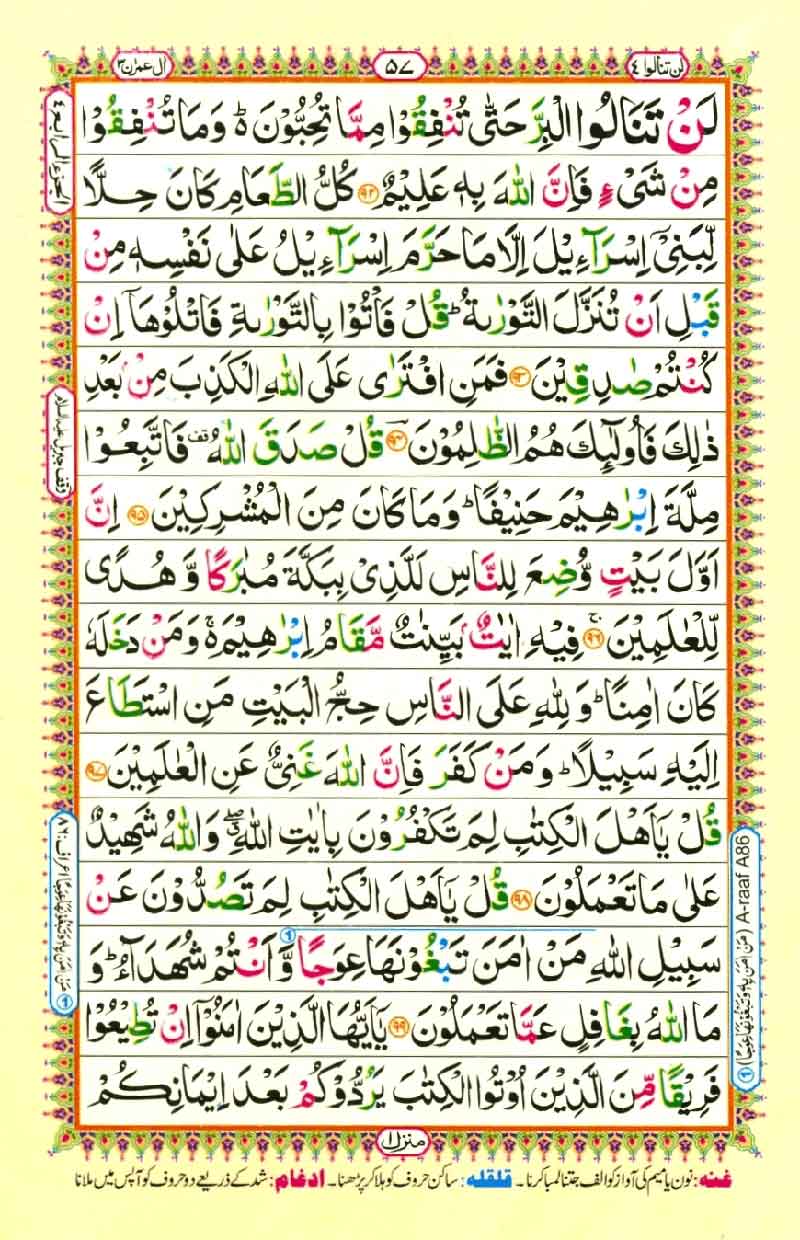 لن تنالوا ۴
۵۷
اٰل عمرٰن ۳
لَنْ تَنَالُوا الْبِرَّ حَتّٰى تُنْفِقُوْا مِمَّا تُحِبُّوْنَ ۬ؕ وَمَا تُنْفِقُوْا
مِنْ شَیْءٍ فَاِنَّ اللّٰهَ بِهٖ عَلِیْمٌ ﴿۹۲﴾ كُلُّ الطَّعَامِ كَانَ حِلًّا
لِّبَنِیْۤ اِسْرَآءِیْلَ اِلَّا مَا حَرَّمَ اِسْرَآءِیْلُ عَلٰى نَفْسِهٖ مِنْ
قَبْلِ اَنْ تُنَزَّلَ التَّوْرٰىةُ ؕ قُلْ فَاْتُوْا بِالتَّوْرٰىةِ فَاتْلُوْهَاۤ اِنْ
كُنْتُمْ صٰدِقِیْنَ ﴿۹۳﴾ فَمَنِ افْتَرٰى عَلَى اللّٰهِ الْكَذِبَ مِنْۢ بَعْدِ
ذٰلِكَ فَاُولٰٓىِٕكَ هُمُ الظّٰلِمُوْنَ ﴿۹۴﴾ قُلْ صَدَقَ اللّٰهُ قف فَاتَّبِعُوْا
مِلَّةَ اِبْرٰهِیْمَ حَنِیْفًا ؕ وَمَا كَانَ مِنَ الْمُشْرِكِیْنَ ﴿۹۵﴾ اِنَّ
اَوَّلَ بَیْتٍ وُّضِعَ لِلنَّاسِ لَلَّذِیْ بِبَكَّةَ مُبٰرَكًا وَّ هُدًى
لِّلْعٰلَمِیْنَ ﴿۹۶﴾ فِیْهِ اٰیٰتٌۢ بَیِّنٰتٌ مَّقَامُ اِبْرٰهِیْمَ ۬ۚ وَمَنْ دَخَلَهٗ
كَانَ اٰمِنًا ؕ وَ لِلّٰهِ عَلَى النَّاسِ حِجُّ الْبَیْتِ مَنِ اسْتَطَاعَ
اِلَیْهِ سَبِیْلًا ؕ وَمَنْ كَفَرَ فَاِنَّ اللّٰهَ غَنِیٌّ عَنِ الْعٰلَمِیْنَ ﴿۹۷﴾
قُلْ یٰۤاَهْلَ الْكِتٰبِ لِمَ تَكْفُرُوْنَ بِاٰیٰتِ اللّٰهِ ۖۗ وَاللّٰهُ شَهِیْدٌ
عَلٰى مَا تَعْمَلُوْنَ ﴿۹۸﴾ قُلْ یٰۤاَهْلَ الْكِتٰبِ لِمَ تَصُدُّوْنَ عَنْ
سَبِیْلِ اللّٰهِ مَنْ اٰمَنَ تَبْغُوْنَهَا عِوَجًا وَّ اَنْتُمْ شُهَدَآءُ ؕ وَ
مَا اللّٰهُ بِغَافِلٍ عَمَّا تَعْمَلُوْنَ ﴿۹۹﴾ یٰۤاَیُّهَا الَّذِیْنَ اٰمَنُوْۤا اِنْ تُطِیْعُوْا
فَرِیْقًا مِّنَ الَّذِیْنَ اُوْتُوا الْكِتٰبَ یَرُدُّوْكُمْ بَعْدَ اِیْمَانِكُمْ
الجزء الرابع ۴
وقف جبریل علیہ السلام
① مَنْ اٰمَنَ بِهٖ وَتَبْغُوْنَهَا عِوَجًا اعراف: ۸۶
① (مَنْ اٰمَنَ بِهٖ وَتَبْغُوْنَهَا عِوَجًا) A-raaf A86
منزل ۱
غنہ: نون یا میم کی آواز کو الف جتنا لمبا کرنا۔ قلقلہ: ساکن حروف کو ہلا کر پڑھنا۔ ادغام: شد کے ذریعے دو حروف کو آپس میں ملانا